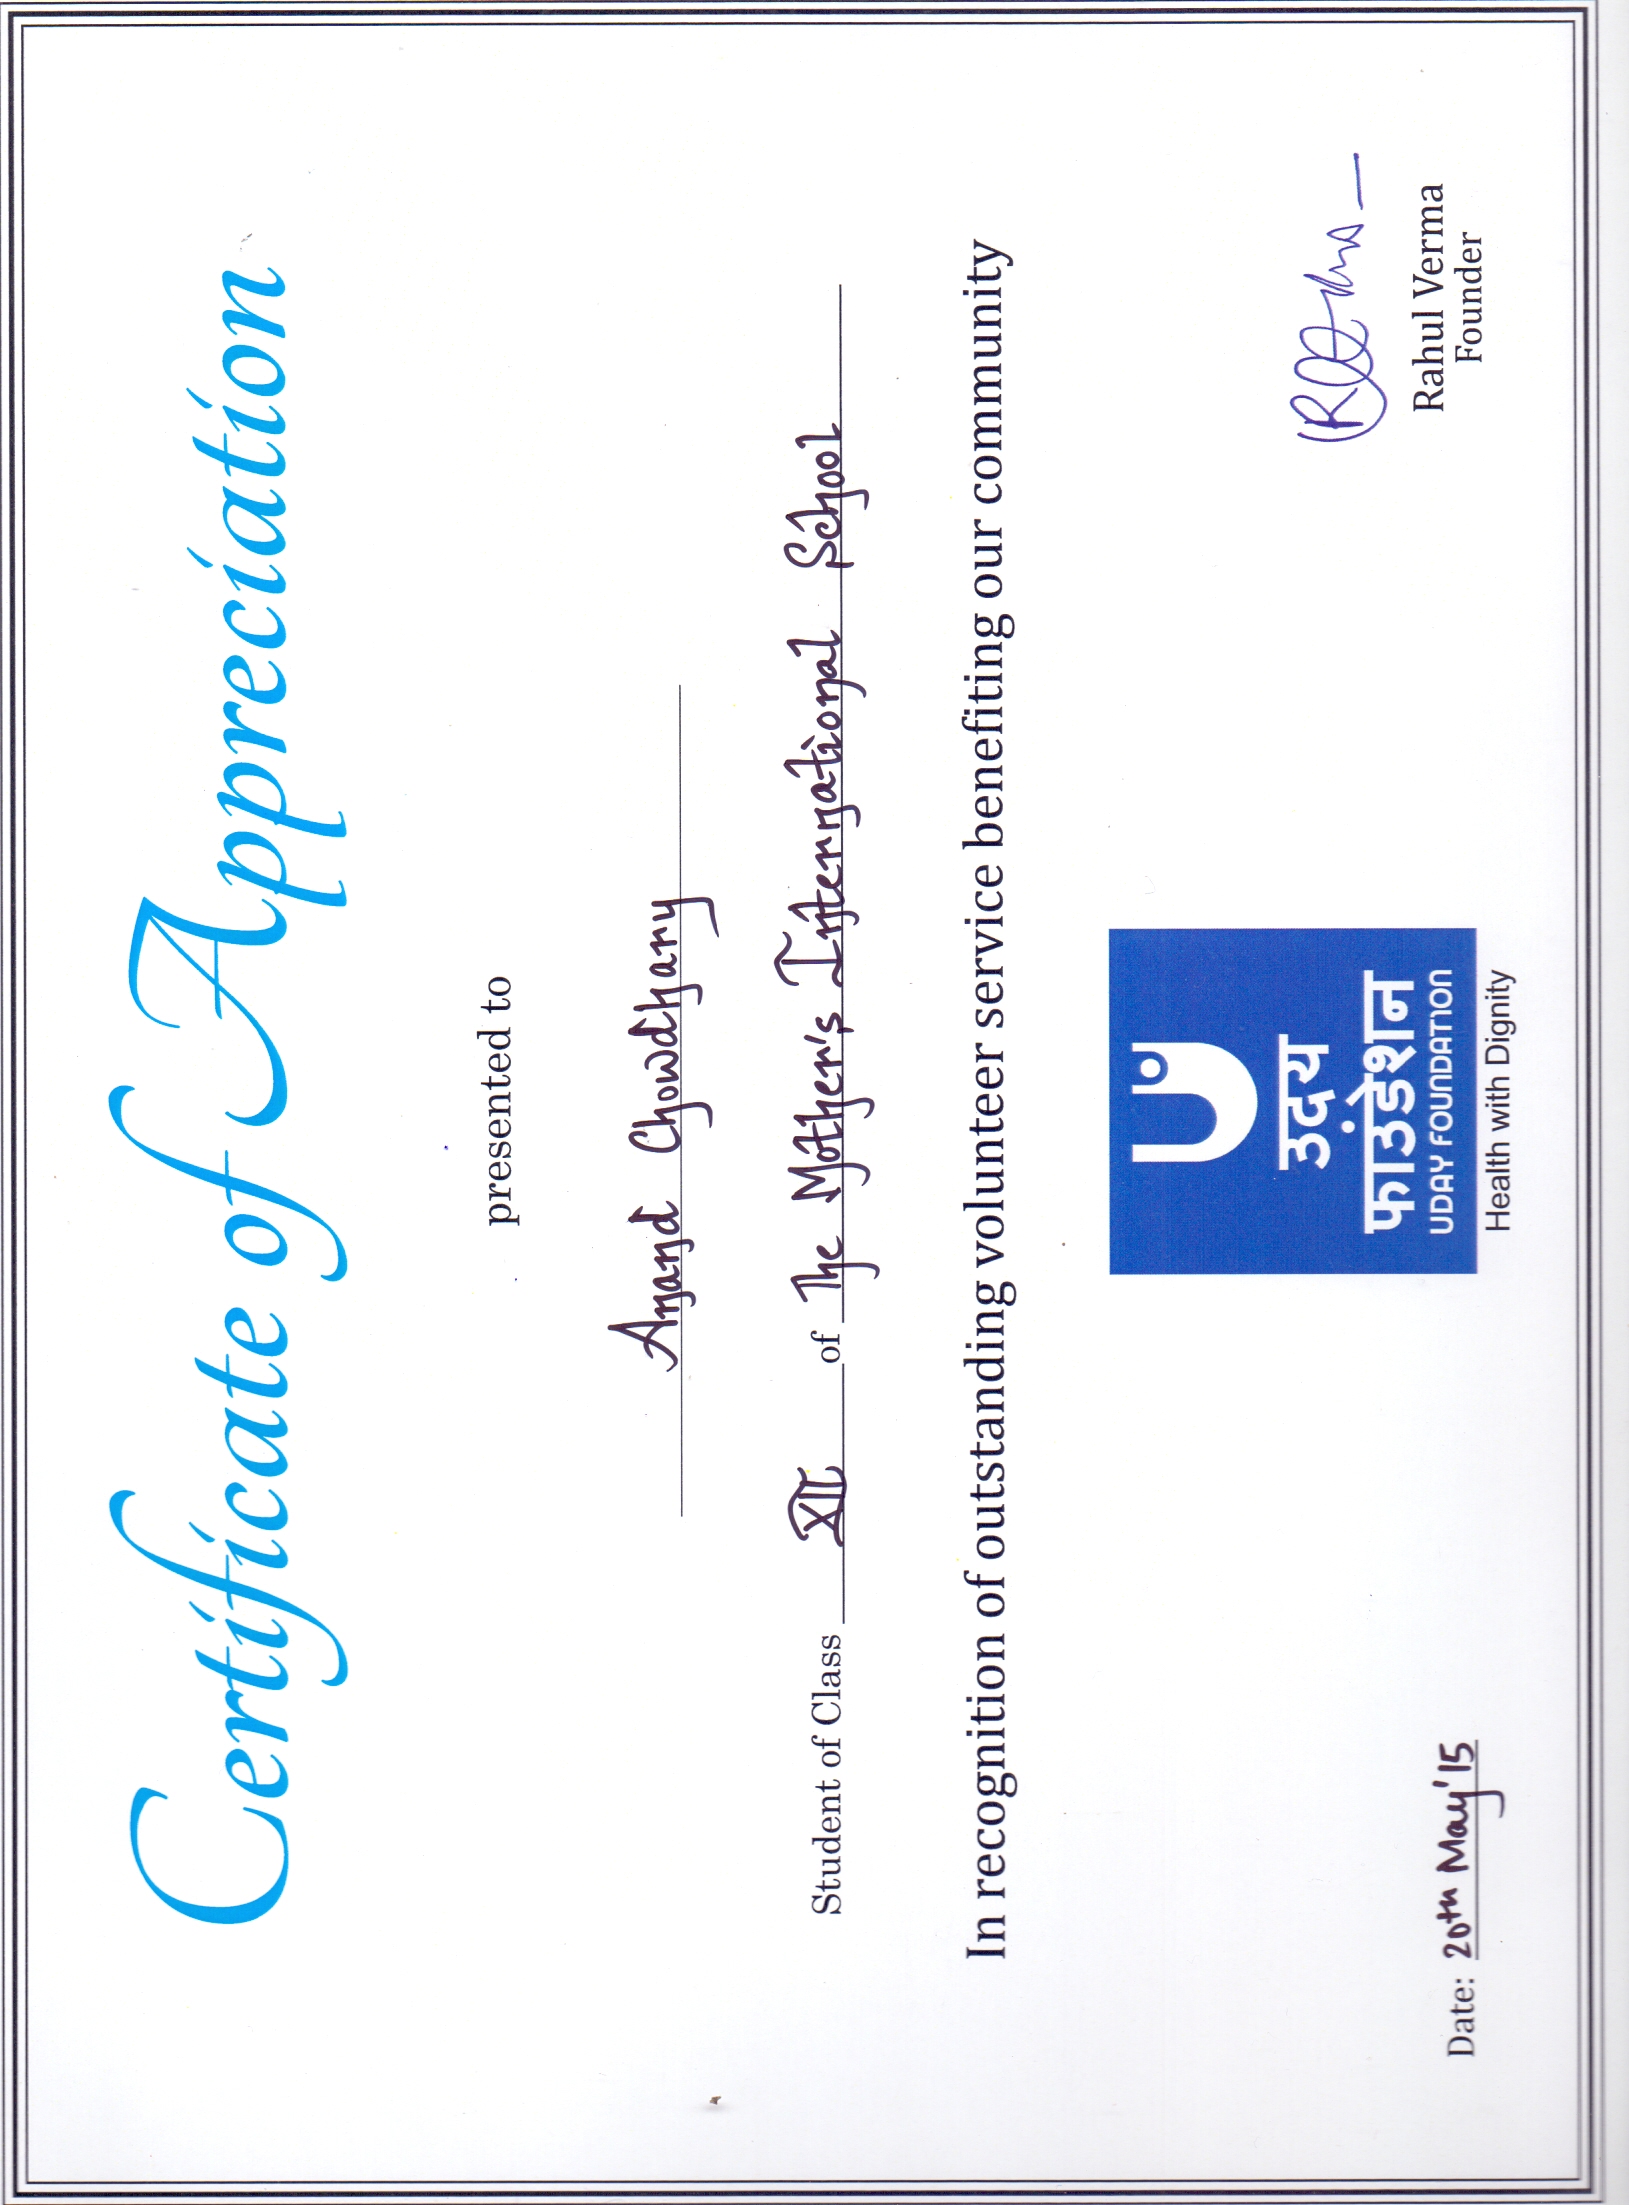 Certificate of Appreciation
presented to
Anand Chowdhary
Student of Class XII of The Mother's International School
In recognition of outstanding volunteer service benefiting our community
उदय
फाउंडेशन
UDAY FOUNDATION
Health with Dignity
Date: 20th May'15
Rahul Verma
Founder